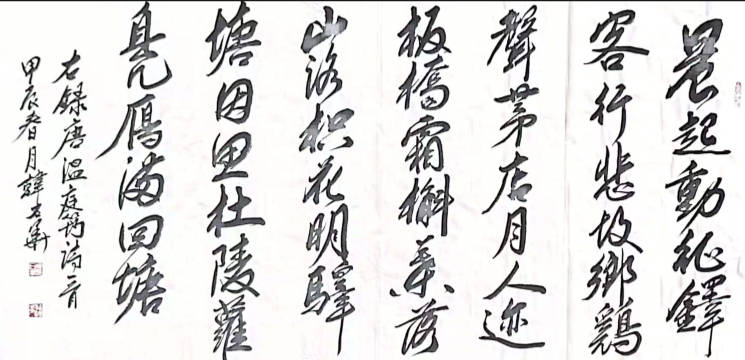 晨起動征鐸
客行悲故鄉鷄
聲茅店月人迹
板橋霜槲葉落
山路枳花明驛
塘因思杜陵
鳧鴈滿回塘
右錄唐温庭筠詩一首
甲辰春月韓